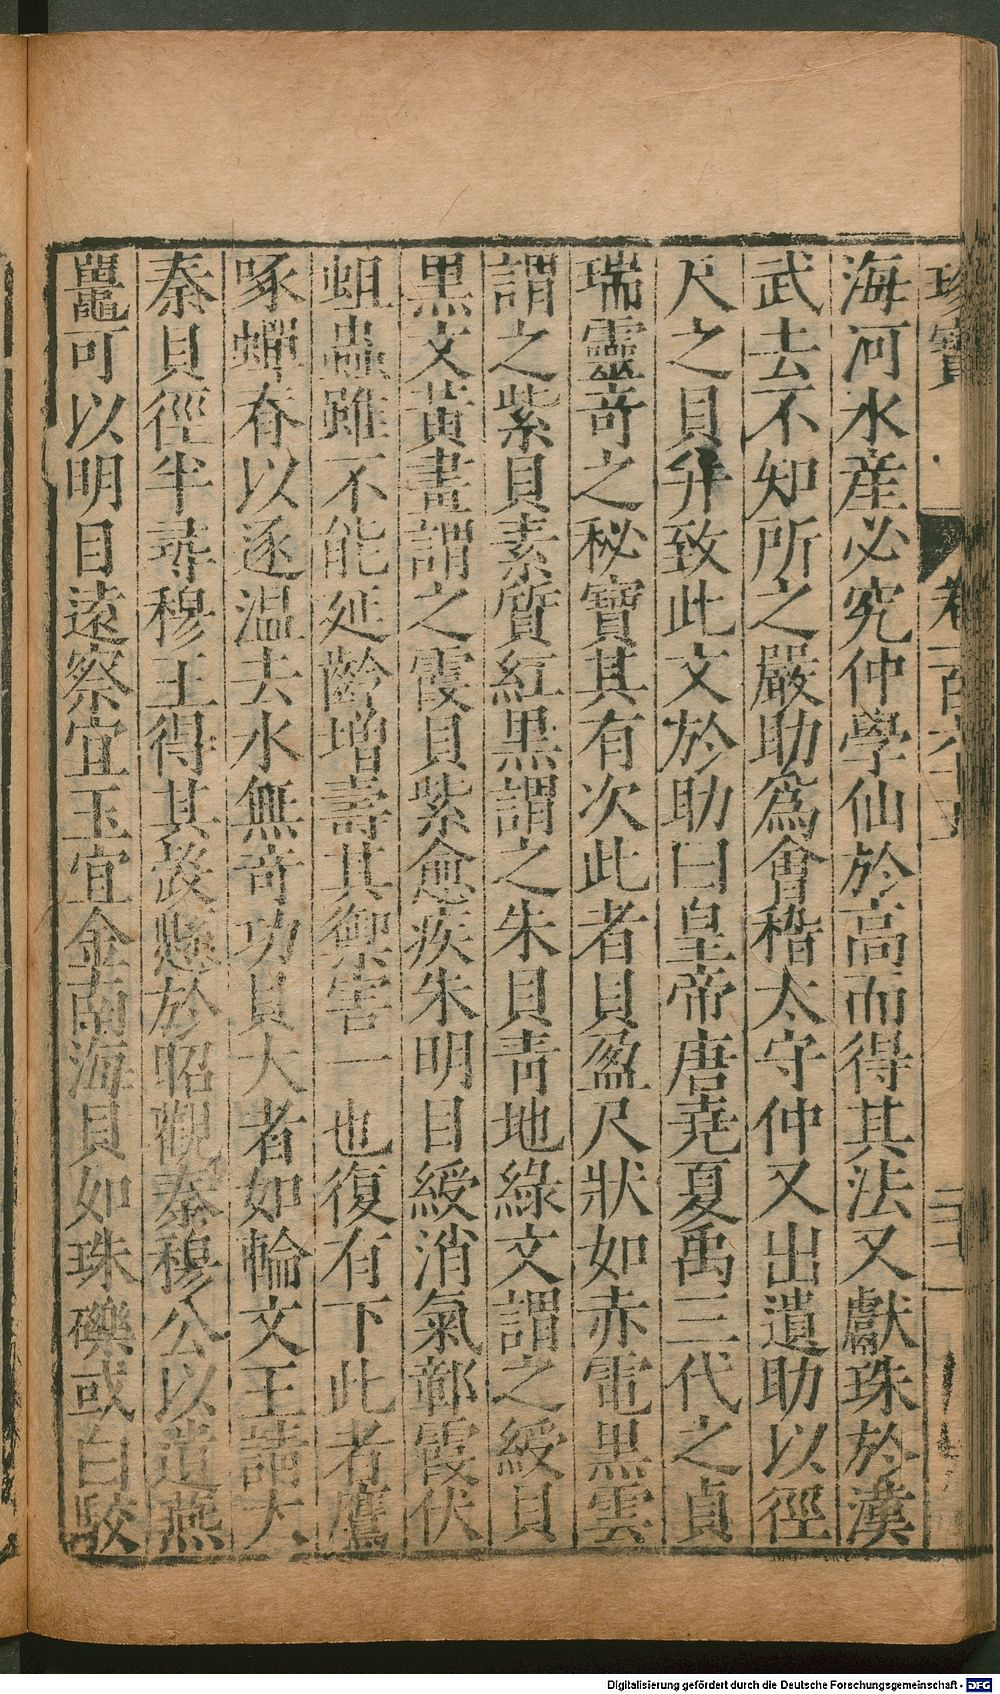 海河水産必究仲學仙於高而得其法又獻珠於漢
武去不知所之嚴助爲會稽太守仲又出遺助以徑
尺之貝幷致此文於助曰皇帝唐堯夏禹三代之貞
瑞靈奇之秘寶其有次此者貝盈尺狀如赤電黒雲
謂之紫貝素質紅黒謂之朱貝靑地綠文謂之綬貝
黒文黃畫謂之霞貝紫愈疾朱明目綬消氣鄣霞伏
蛆蟲雖不能延齡增壽其禦害一也復有下此者鷹
喙蟬脊以逐温去水無奇功貝大者如輪文王請大
秦貝徑半尋穆王得其殼懸於昭觀秦穆公以遺燕
鼂可以明目遠察宜玉宜金南海貝如珠礫或白駮
珍寶 卷一百六十五
Digitalisierung gefördert durch die Deutsche Forschungsgemeinschaft - DFG